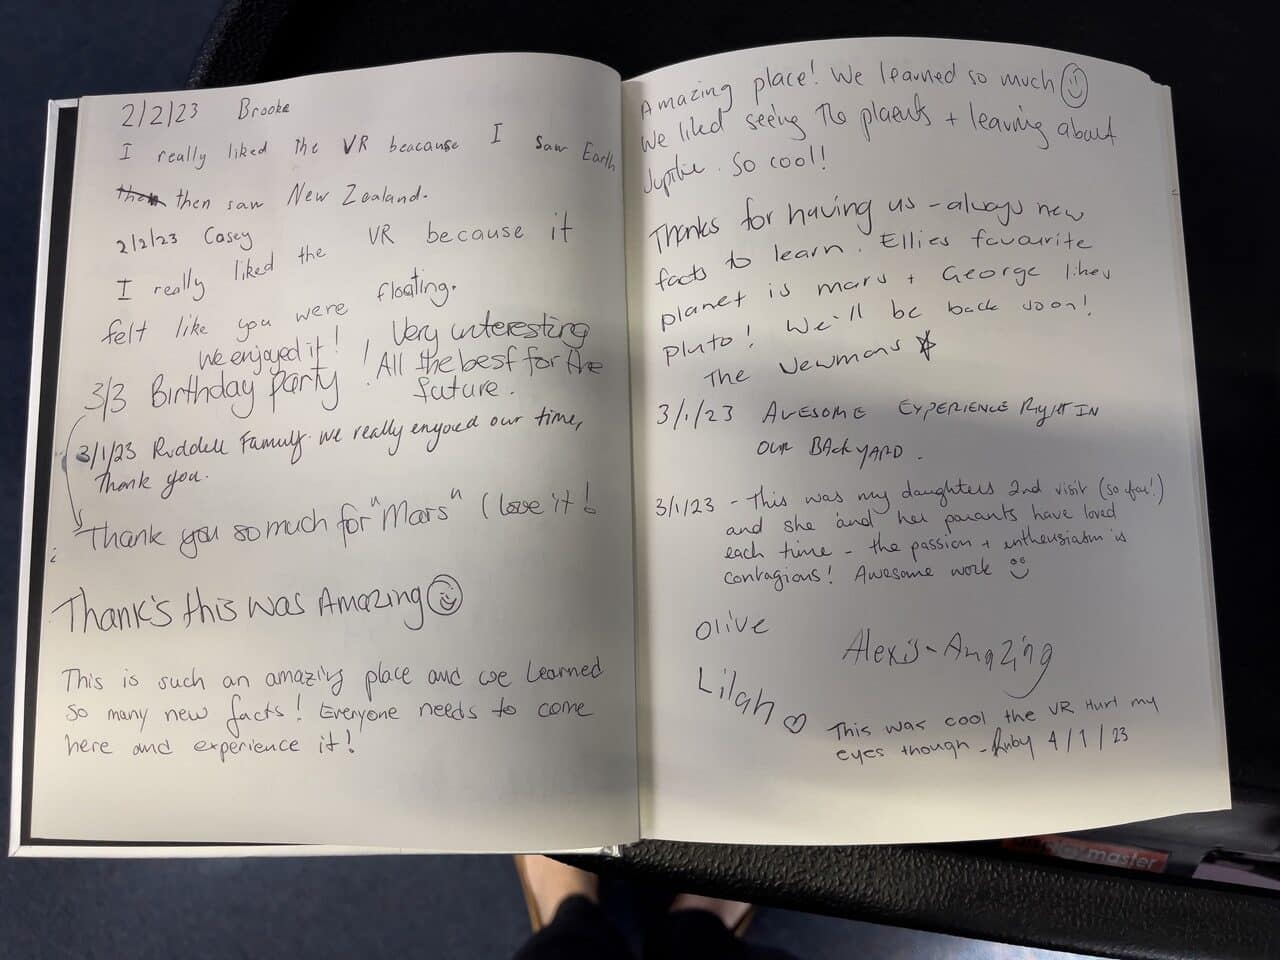 2/2/23 Brooke
I really liked the VR beacause I saw Earth
then saw New Zealand.
2/2/23 Casey
I really liked the VR because it
felt like you were floating.
we enjoyed it! ! Very interesting
3/3 Birthday party All the best for the
future.
3/1/23 Ruddell Family. we really enjoyed our time,
thank you.
Thank you so much for "Mars" I love it!
Thank's this was Amazing
This is such an amazing place and we learned
so many new facts! Everyone needs to come
here and experience it!
Amazing place! We learned so much
We liked seeing the plaents + learing about
Jupitie. So cool!
Thanks for having us - always new
facts to learn. Ellies favourite
planet is mars + George likes
pluto! We'll be back soon!
The Newmans
3/1/23 AWESOME EXPERIENCE RIGHT IN
OUR BACKYARD.
3/1/23 - This was my daughters 2nd visit (so far!)
and she and her parants have loved
each time - the passion + entheusiasm is
contagious! Awesome work
Olive
Alexis - Amazing
Lilah
This was cool the VR Hurt my
eyes though - Ruby 4/1/23
master